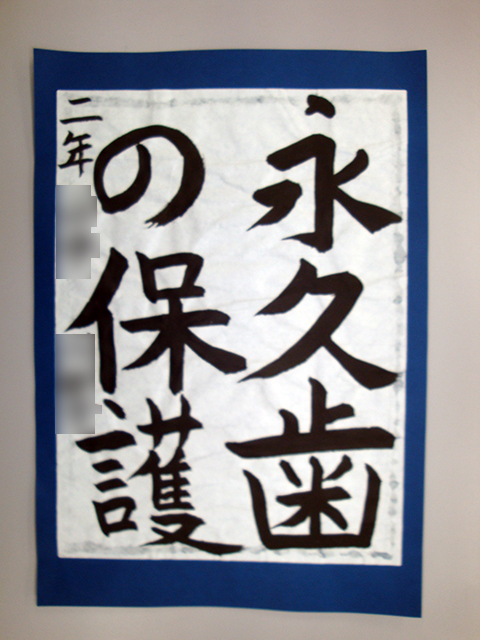 永久歯
の保護
二年